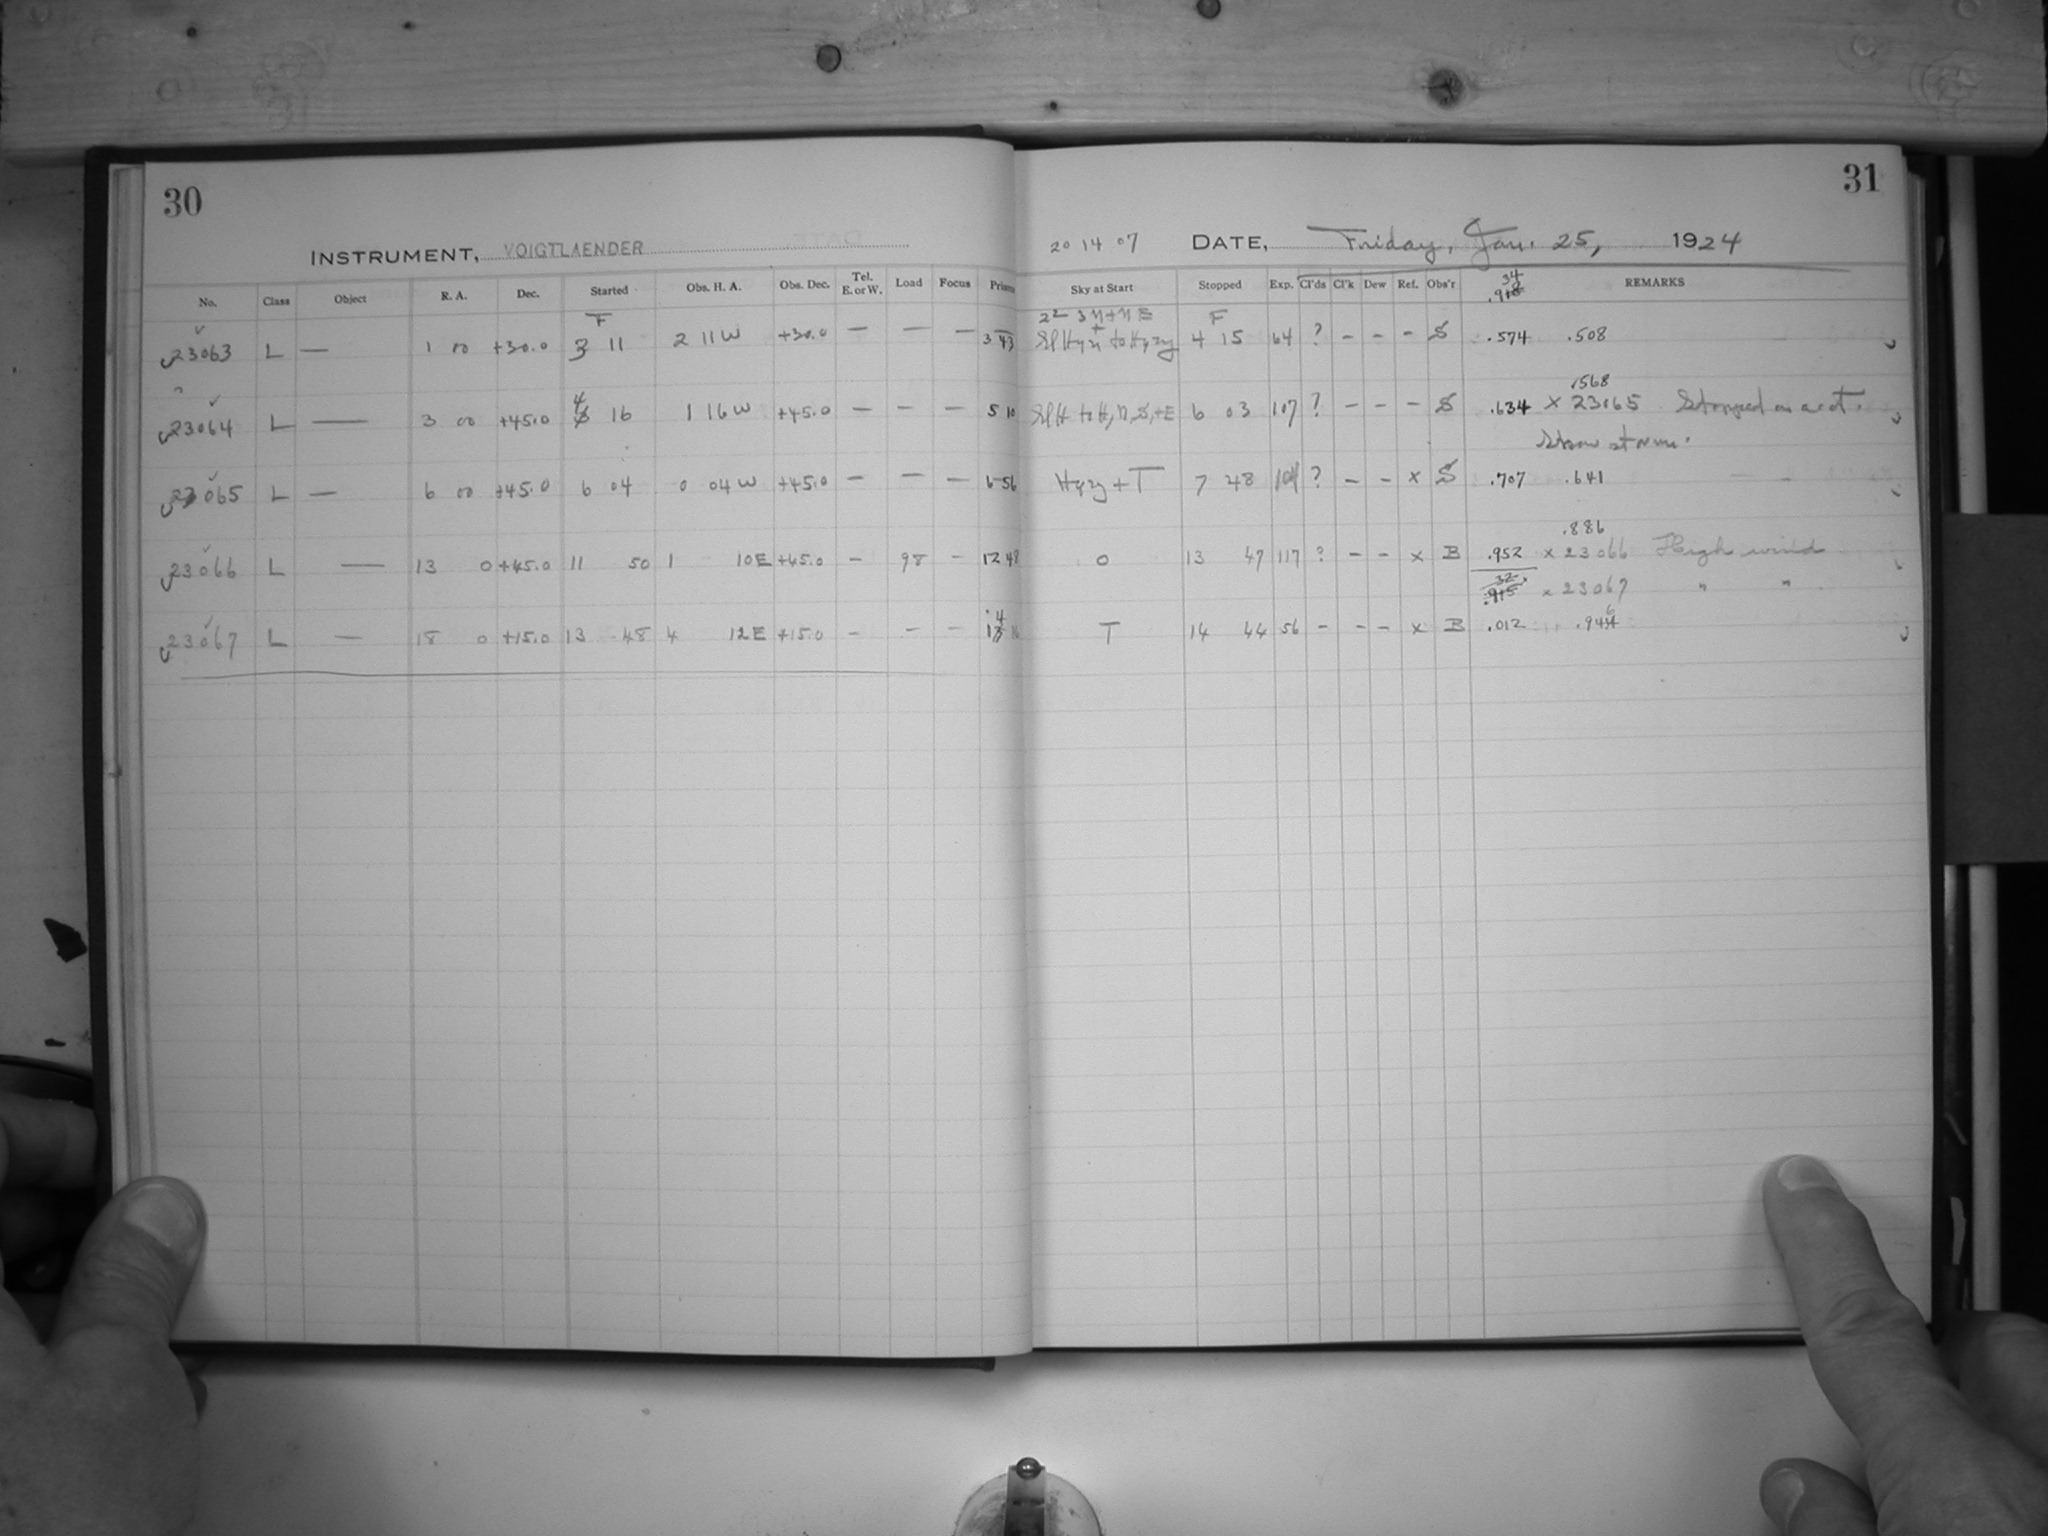 30
31
INSTRUMENT, VOIGTLAENDER
20 14 07 DATE, Friday, Jan. 25, 1924
No. Class Object R. A. Dec. Started Obs. H. A. Obs. Dec. Tel. E. or W. Load Focus Prisms Sky at Start Stopped Exp. Cl'ds Cl'k Dew Ref. Obs'r REMARKS
34
F F
23063 L — 1 00 +30.0 3 11 2 11 W +30.0 — — — 3 43 4 15 64 ? – – – S .574 .508
.568
23064 L — 3 00 +45.0 4 16 1 16 W +45.0 — — — 5 10 6 03 107 ? – – – S .634 × 23065 Stopped on acct.
Snow storm.
23065 L — 6 00 +45.0 6 04 0 04 W +45.0 — — — 6 56 7 48 104 ? – – × S .707 .641
.886
23066 L — 13 0 +45.0 11 50 1 10 E +45.0 – 98 – 12 48 0 13 47 117 ? – – × B .952 × 23066 High wind
32 × 23067 " "
23067 L — 18 0 +15.0 13 48 4 12 E +15.0 – – – 14 16 T 14 44 56 – – – × B .012 .946